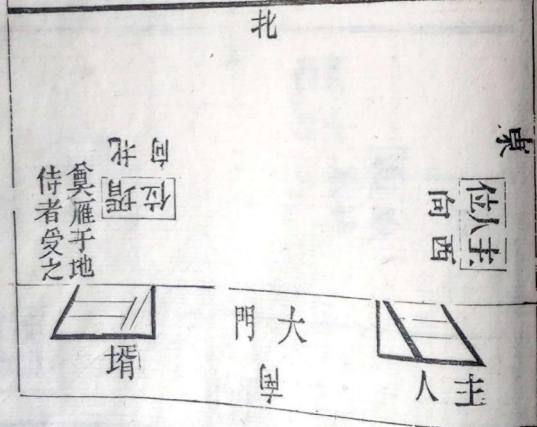 北
東
主人位
西向
壻位
北向
奠雁于地
侍者受之
大門
南
主人
壻